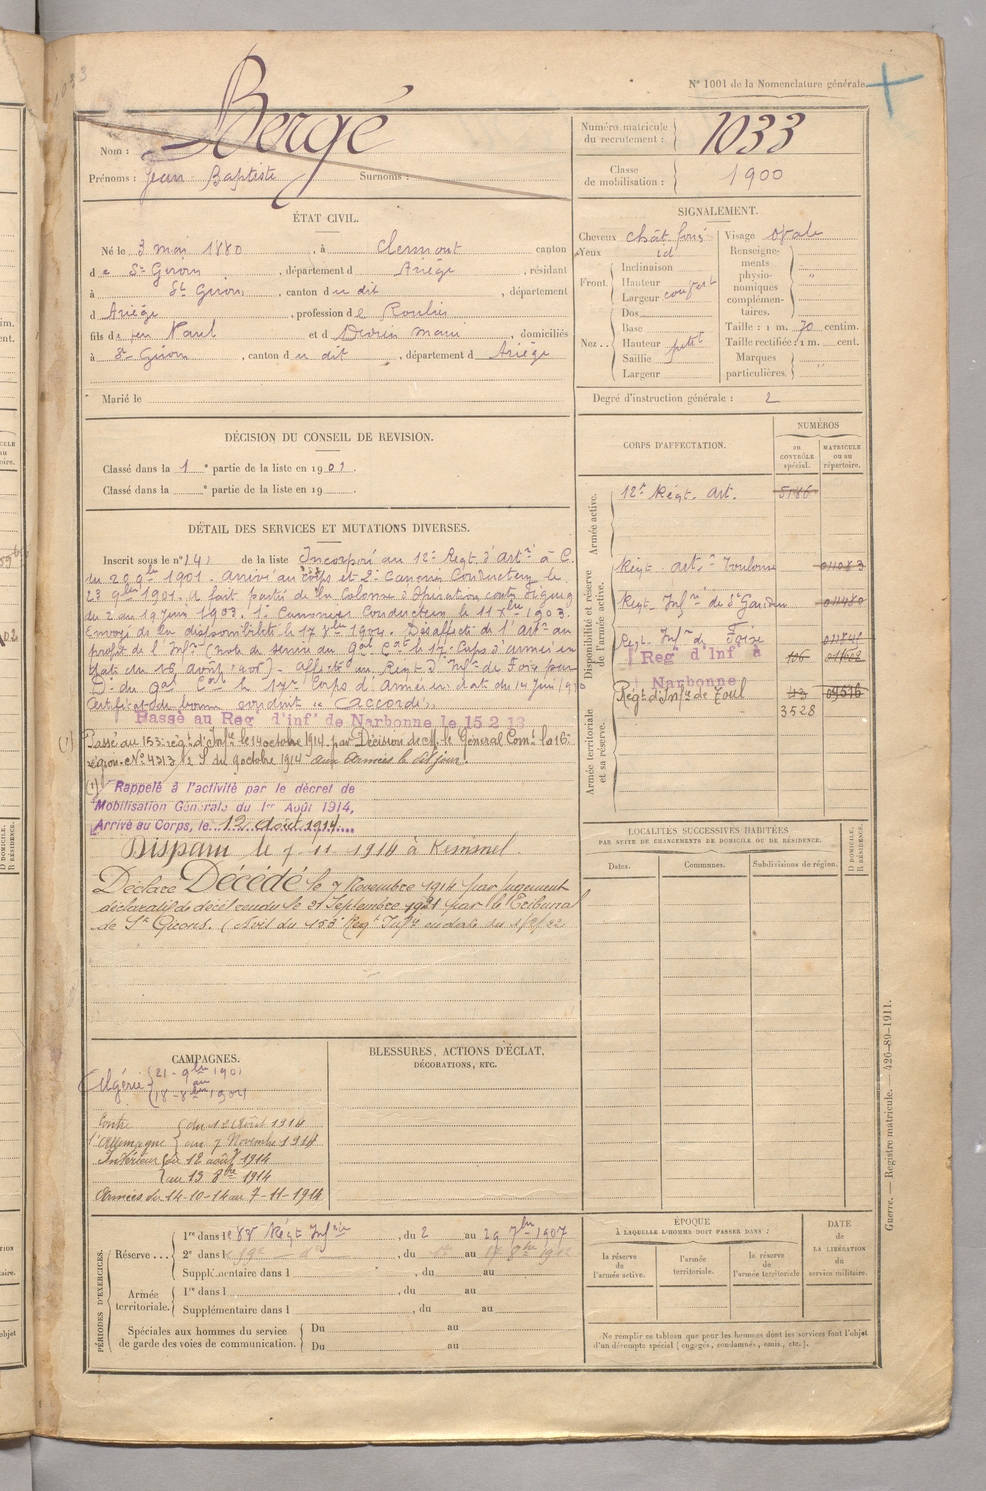 N° 1001 de la Nomenclature générale.
Nom : Bergé
Prénoms : Jean Baptiste Surnoms :
Numéro matricule du recrutement : 1033
Classe de mobilisation : 1900
ÉTAT CIVIL.
Né le 3 mai 1880 , à Clermont canton
de St Girons , département d Ariège , résidant
à St Girons , canton du dit , département
d Ariège , profession de Roulier
fils de feu Paul et d Marie , domiciliés
à St Girons , canton du dit , département d Ariège
Marié le
SIGNALEMENT.
Cheveux chât foncé
Yeux id
Front. Inclinaison
Hauteur
Largeur
Nez .. Dos
Base
Hauteur petit
Saillie
Largeur
Visage ovale
Renseignements physionomiques complémentaires. "
Taille : 1 m. 70 centim.
Taille rectifiée : 1 m. cent.
Marques particulières. "
Degré d'instruction générale : 2
DÉCISION DU CONSEIL DE REVISION.
Classé dans la 1 e partie de la liste en 1901.
Classé dans la e partie de la liste en 19 .
DÉTAIL DES SERVICES ET MUTATIONS DIVERSES.
Inscrit sous le n° 141 de la liste Incorporé au 12e Régt d'Artie à C.
du 20 9bre 1901. Arrivé au corps et 2e Canonnier Conducteur le
23 9bre 1901. A fait partie de la Colonne d'Opération contre Figuig
du 2 au 19 juin 1903. 1er Canonnier Conducteur le 11 Xbre 1903.
Envoyé dans la disponibilité le 17 8bre 1904. Désaffecté de l'Artie au
profit de l'Infie (Note de service du Gal Ct le 17e Corps d'Armée en
date du 16 avril 1906). Affecté au Régt d'Infie de Foix par
Don du Gal Ct le 17e Corps d'Armée en date du 14 juin 1910
Certificat de bonne conduite "Accordé".
Passé au Reg. d'infie de Narbonne le 15 2 13
(1) Passé au 153e régt d'Infie le 14 octobre 1914 par Décision de M. le Général Comt la 16e
région N° 4313 /2 S du 9 octobre 1914 aux Armées le dit jour.
(1) Rappelé à l'activité par le décret de
Mobilisation Générale du 1er Août 1914,
Arrivé au Corps, le 12 août 1914
Disparu le 7-11-1914 à Kemmel.
Déclaré Décédé le 7 Novembre 1914 par jugement
déclaratif de décès rendu le 21 Septembre 1921 par le Tribunal
de St Girons. (Avis du 153e Régt Infie en date du
CORPS D'AFFECTATION.
NUMÉROS
au CONTRÔLE spécial.
MATRICULE ou au répertoire.
Armée active.
12e Régt. Art. 5186
Disponibilité et réserve de l'armée active.
Régt. Artie Toulouse 011083
Régt. Infie de St Gaudens 011480
Regt Infie de Foix
Reg' d'Inf' à Narbonne 106
Régt d'Infie de Toul 43 09516
3528
Armée territoriale et sa réserve.
LOCALITÉS SUCCESSIVES HABITÉES
PAR SUITE DE CHANGEMENTS DE DOMICILE OU DE RÉSIDENCE.
Dates. Communes. Subdivisions de région. D DOMICILE. R RÉSIDENCE.
CAMPAGNES.
Algérie (21-9bre 1901
au
(18-8bre 1904
Contre l'Allemagne du 12 Août 1914
au 7 Novembre 1914
Intérieur du 12 août 1914
au 13 8bre 1914
Armées du 14-10-14 au 7-11-1914
BLESSURES, ACTIONS D'ÉCLAT,
DÉCORATIONS, ETC.
PÉRIODES D'EXERCICES.
Réserve ... 1re dans le 88e Régt Infie , du 2 au 29 7bre 1907
2e dans l 59e , du 1er au 17 8bre 1912
Supplémentaire dans l , du au
Armée territoriale. 1re dans l , du au
Supplémentaire dans l , du au
Spéciales aux hommes du service de garde des voies de communication. Du au
Du au
ÉPOQUE
À LAQUELLE L'HOMME DOIT PASSER DANS :
la réserve de l'armée active.
l'armée territoriale.
la réserve de l'armée territoriale
DATE de LA LIBÉRATION du service militaire.
Ne remplir ce tableau que pour les hommes dont les services font l'objet
d'un décompte spécial (engagés, condamnés, omis, etc.).
Guerre. — Registre matricule. — 426-89-1911.